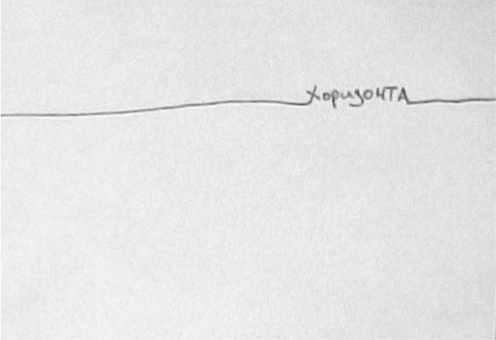 хоризонТА